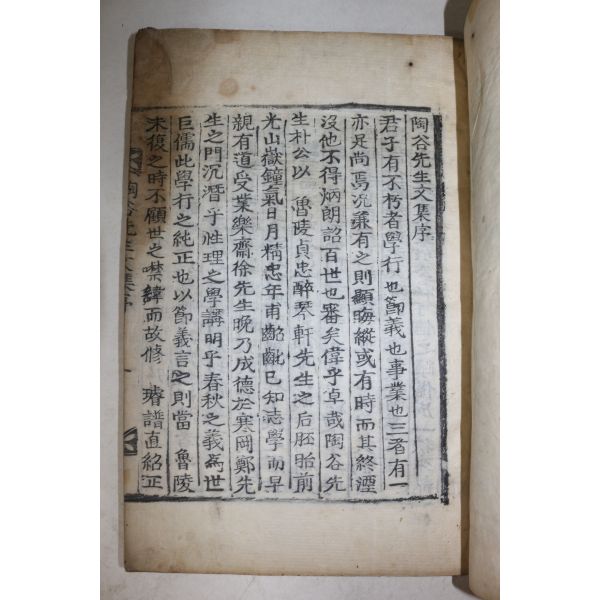 陶谷先生文集序
君子有不朽者學行也節義也事業也三者有一
亦足尚焉況兼有之則顯晦縱或有時而其終湮
沒他不得炳朗詔百世也審矣偉乎卓哉陶谷先
生朴公以 魯陵貞忠醉琴軒先生之后胚胎前
光山嶽鐘氣日月精忠年甫齠齔已知志學而早
親有道受業樂齋徐先生晚乃成德於寒岡鄭先
生之門沉潛乎性理之學講明乎春秋之義為世
巨儒此學行之純正也以節義言之則當 魯陵
未復之時不顧世之噤諱而故修 璿譜直紹正
陶谷先生文集序
一